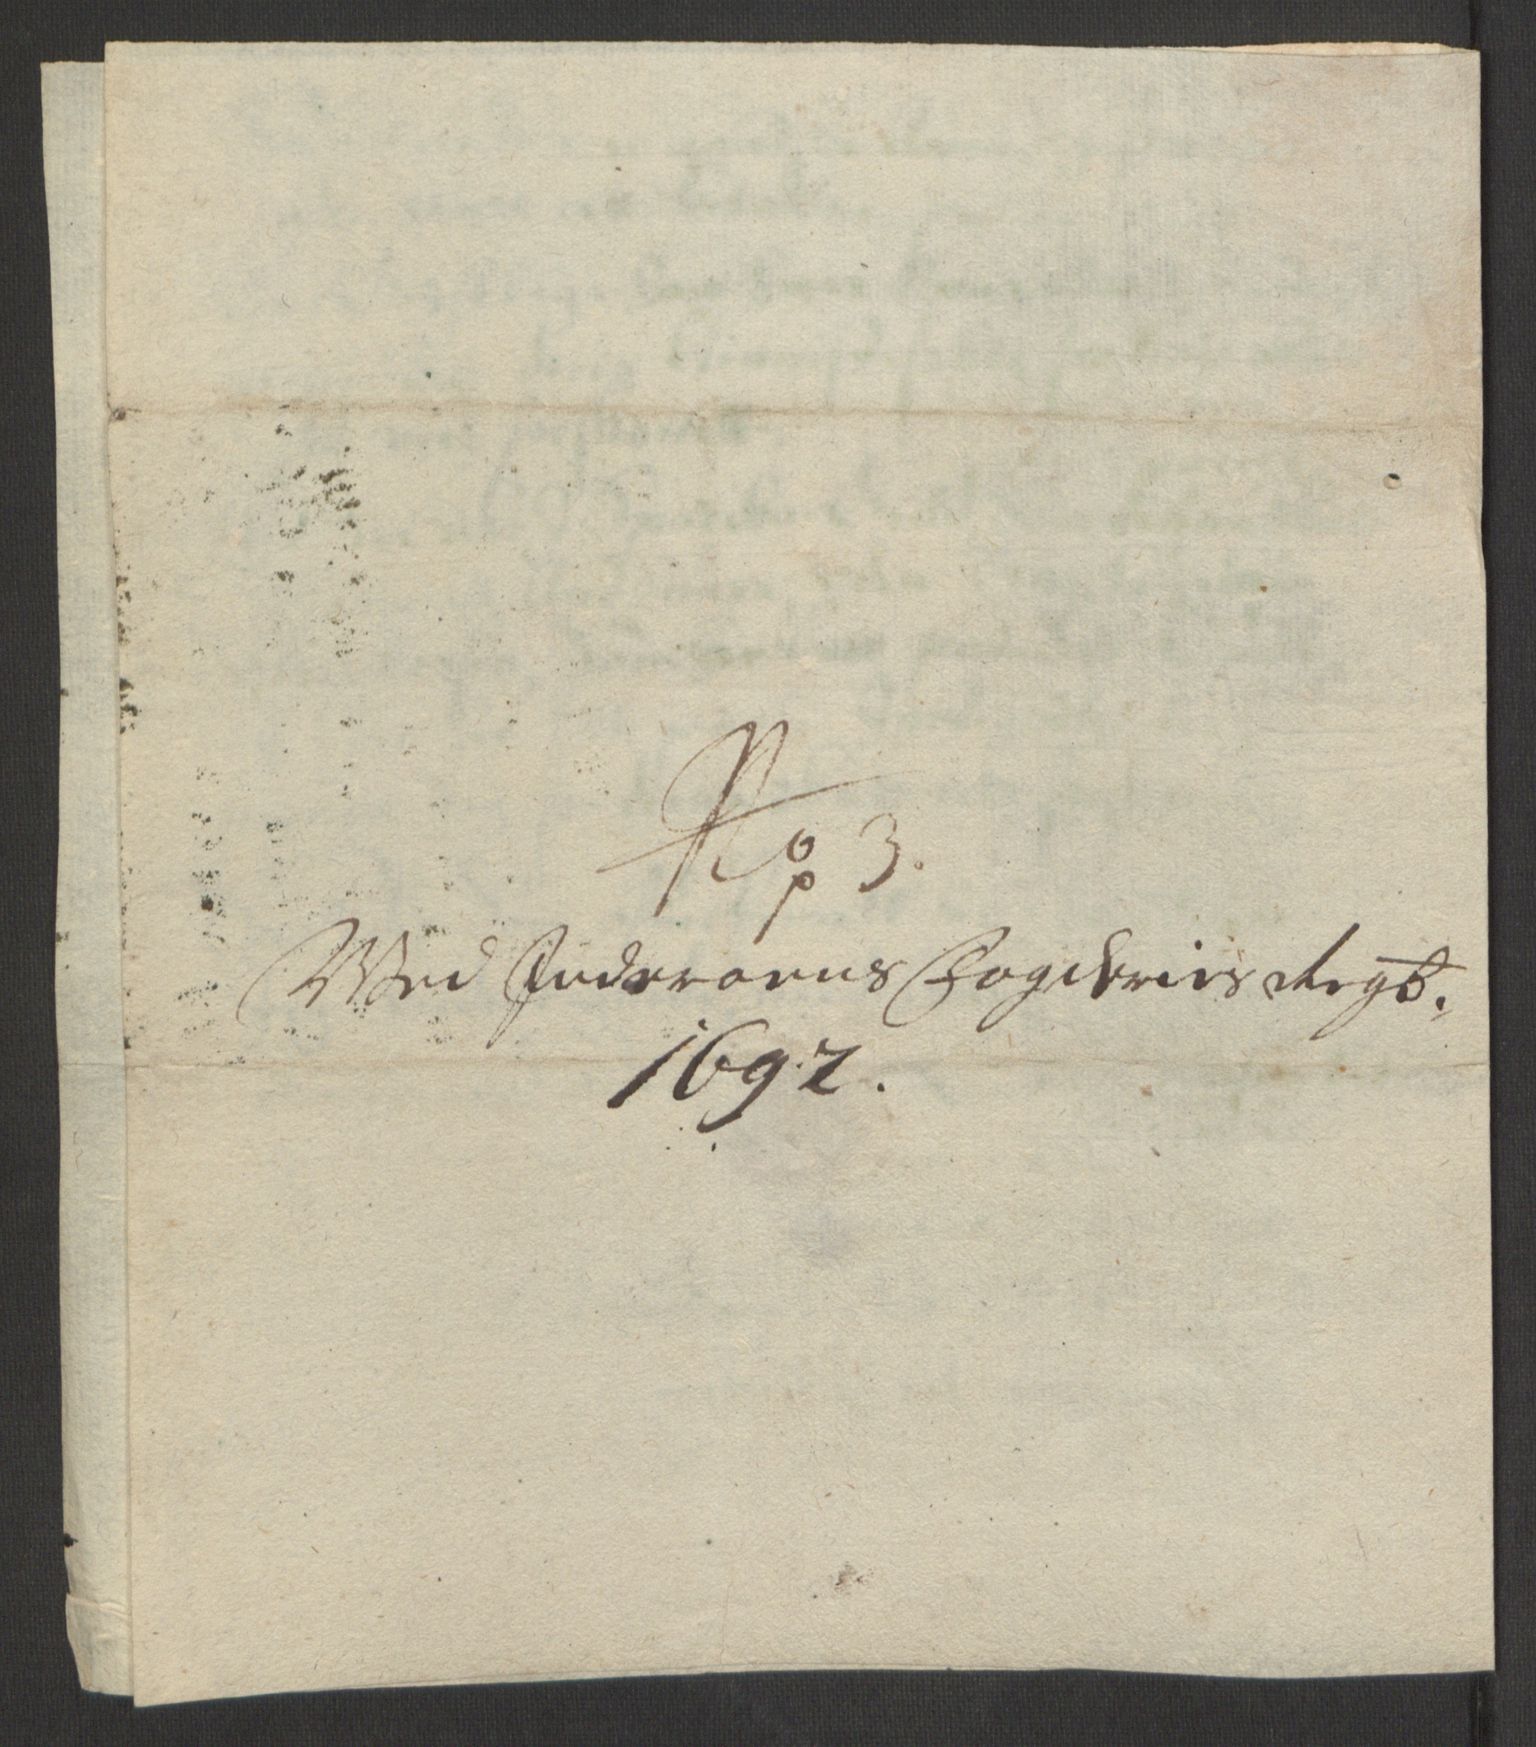 No 3.
Wed Inderøens Fogderies Regsb.
1692.